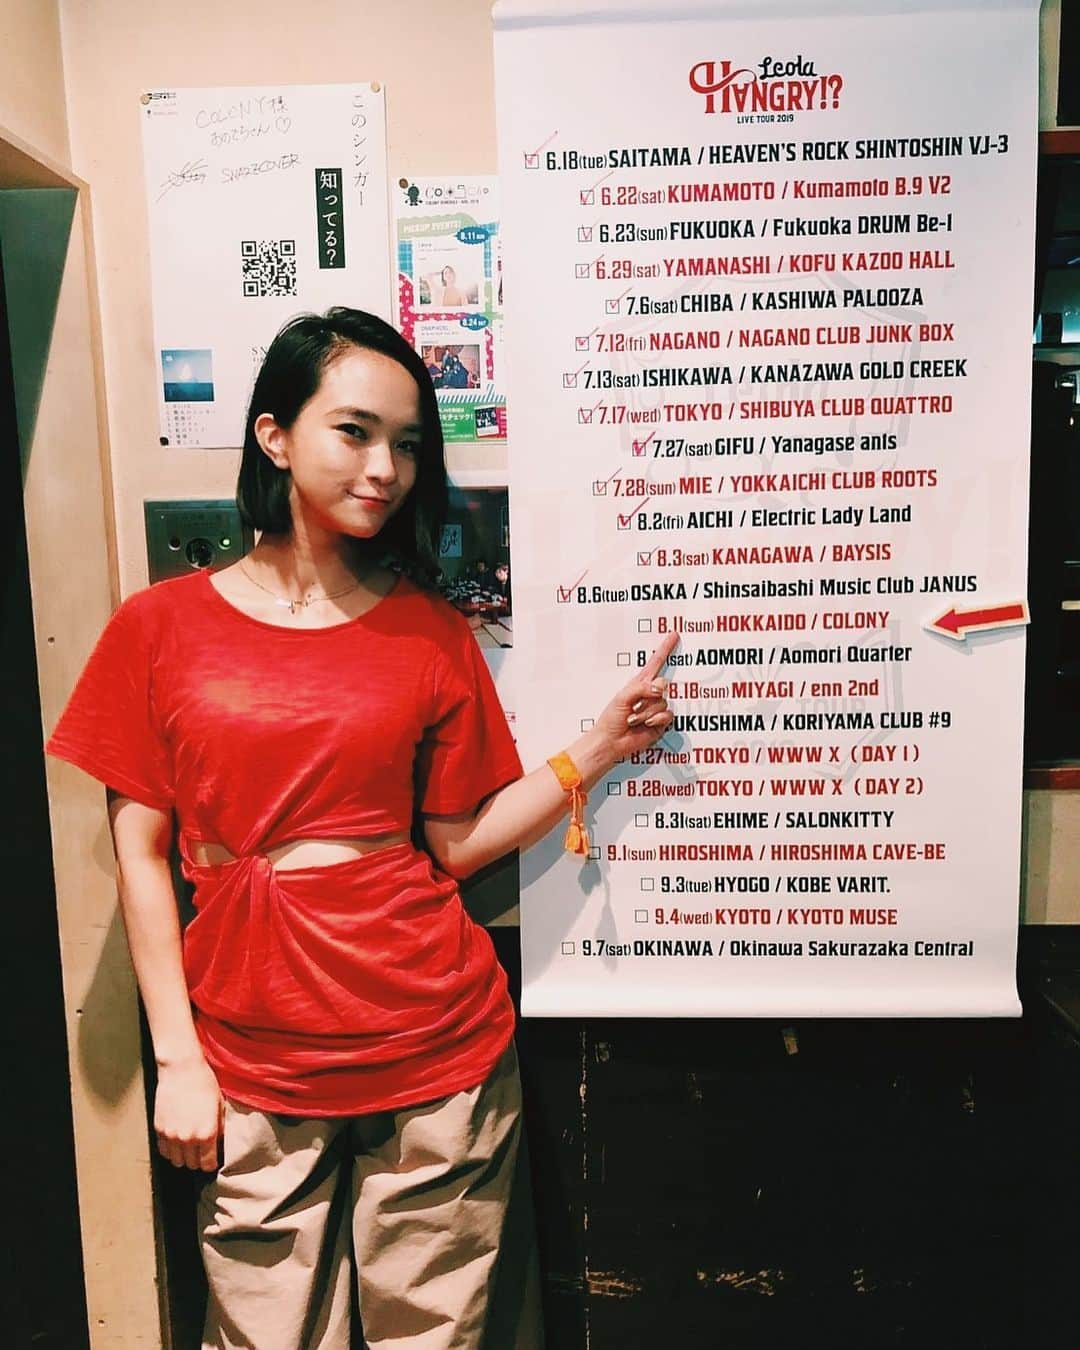 Leola
HANGRY!?
LIVE TOUR 2019
6.18(tue) SAITAMA / HEAVEN'S ROCK SHINTOSHIN VJ-3
6.22(sat) KUMAMOTO / Kumamoto B.9 V2
6.23(sun) FUKUOKA / Fukuoka DRUM Be-1
6.29(sat) YAMANASHI / KOFU KAZOO HALL
7.6(sat) CHIBA / KASHIWA PALOOZA
7.12(fri) NAGANO / NAGANO CLUB JUNK BOX
7.13(sat) ISHIKAWA / KANAZAWA GOLD CREEK
7.17(wed) TOKYO / SHIBUYA CLUB QUATTRO
7.27(sat) GIFU / Yanagase ants
7.28(sun) MIE / YOKKAICHI CLUB ROOTS
8.2(fri) AICHI / Electric Lady Land
8.3(sat) KANAGAWA / BAYSIS
8.6(tue) OSAKA / Shinsaibashi Music Club JANUS
8.11(sun) HOKKAIDO / COLONY
(sat) AOMORI / Aomori Quarter
8.18(sun) MIYAGI / enn 2nd
UKUSHIMA / KORIYAMA CLUB #9
8.27(tue) TOKYO / WWW X (DAY 1)
8.28(wed) TOKYO / WWW X (DAY 2)
8.31(sat) EHIME / SALONKITTY
9.1(sun) HIROSHIMA / HIROSHIMA CAVE-BE
9.3(tue) HYOGO / KOBE VARIT.
9.4(wed) KYOTO / KYOTO MUSE
9.7(sat) OKINAWA / Okinawa Sakurazaka Central
このシンガー
知ってる?
COLONY様
SNAZZCOVER
PICKUP EVENTS!
8.11
8.24